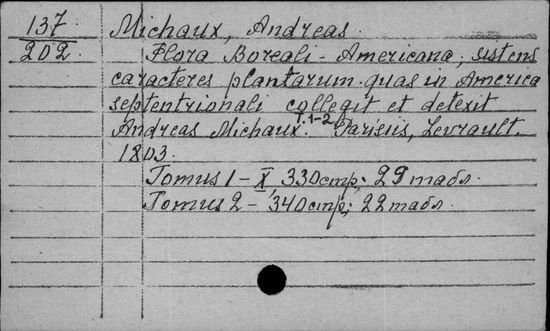 137
202
Michaux, Andreas.
Flora Boreali-Americana, sistens
caracteres plantarum quas in America
septentrionali collegit et detexit
Andreas Michaux. T.1-2. Parisiis, Levrault.
1803.
Tomus 1 – X, 330 стр; 29 табл.
Tomus 2 – 340 стр; 22 табл.